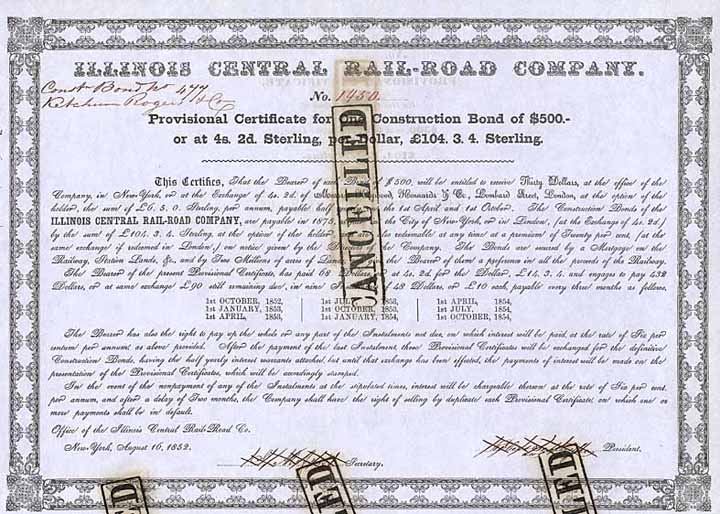 ILLINOIS CENTRAL RAIL-ROAD COMPANY.
Const Bond No 477
Ketchum Rogers & Co
No. 1950.
Provisional Certificate for One Construction Bond of $500.-
or at 4s. 2d. Sterling, per Dollar, £104. 3. 4. Sterling.
CANCELLED
This Certifies, That the Bearer of $500, will be entitled to receive Thirty Dollars, at the office of the
Company in New-York, or at the Exchange of 4s. 2d. of & Co., Lombard Street, London, at the option of the
holder, the sum of £6. 5. 0. Sterling, per annum, payable half 1st April and 1st October. The Construction Bonds of the
ILLINOIS CENTRAL RAIL-ROAD COMPANY, are payable in the City of New-York, or in London, (at the Exchange of 4s. 2d.,)
by the sum of £104. 3. 4. Sterling, at the option of the holder, redeemable at any time at a premium of Twenty per cent, (at the
same exchange if redeemed in London,) on notice given by the Company. The Bonds are secured by a Mortgage on the
Railway, Station Lands, &c., and by Two Millions of acres of the Bearer of them a preference in all the proceeds of the Railway.
The Bearer of the present Provisional Certificate, has paid 68 at 4s. 2d. for the Dollar, £14. 3. 4. and engages to pay 432
Dollars, or at same exchange £90 still remaining due, in nine 48 Dollars, or £10 each, payable every three months as follows,
1st OCTOBER, 1852, 1st JULY 1853, 1st APRIL, 1854,
1st JANUARY, 1853, 1st OCTOBER, 1853, 1st JULY, 1854,
1st APRIL, 1853, 1st JANUARY, 1854, 1st OCTOBER, 1854,
The Bearer has also the right to pay up the whole or any part of the Instalments not due, on which interest will be paid, at the rate of Six per
centum per annum, as above provided. After the payment of the last Instalment, these Provisional Certificates will be exchanged for the definitive
Construction Bonds, having the half yearly interest warrants attached, but until that exchange has been effected, the payments of interest will be made on the
presentation of the Provisional Certificates, which will be accordingly stamped.
In the event of the nonpayment of any of the Instalments at the stipulated times, interest will be chargeable thereon at the rate of Six per cent.
per annum, and after a delay of Two months, the Company shall have the right of selling by duplicate each Provisional Certificate, on which one or
more payments shall be in default.
Office of the Illinois Central Rail-Road Co.
New-York, August 16, 1852.
Secretary.
President.
LED
LED
LED